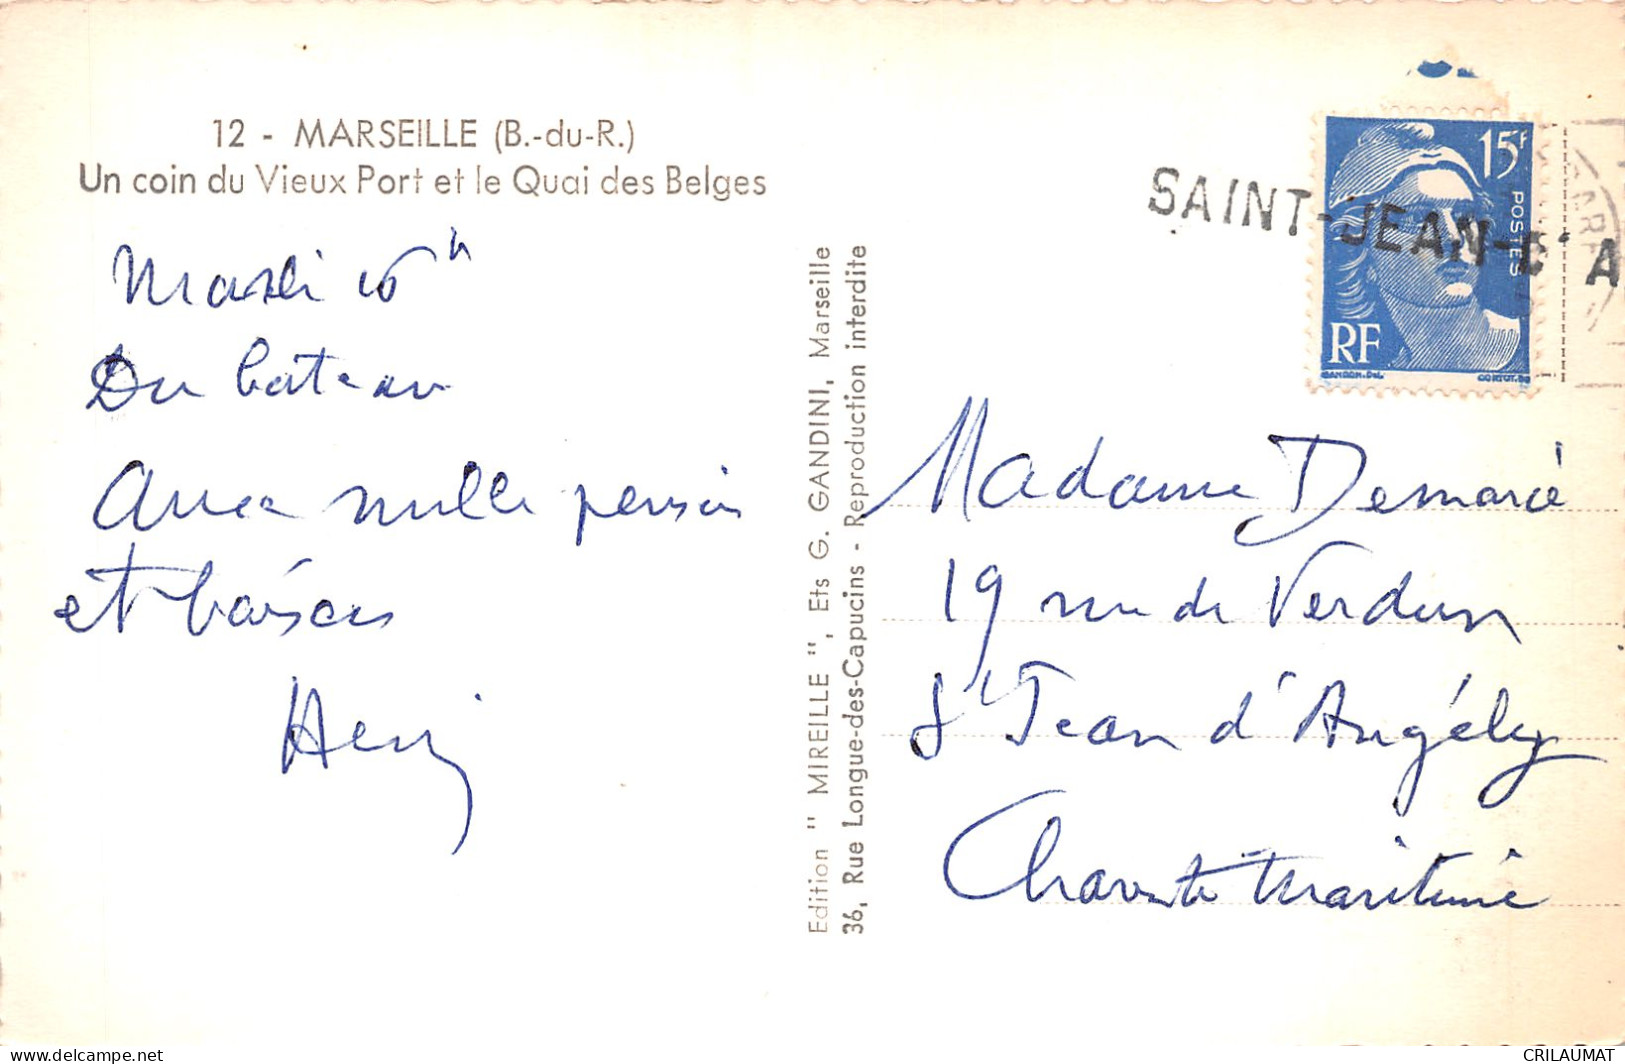 12 - MARSEILLE (B.-du-R.)
Un coin du Vieux Port et le Quai des Belges
Mardi 16 h
Du bateau
Avec mille pensées
et baisers
Henri
Edition " MIREILLE ", Ets G. GANDINI, Marseille
36, Rue Longue-des-Capucins - Reproduction interdite
SAINT-JEAN-D'A
15f
POSTES
RF
GANDON-DEL.
Madame Demarié
19 rue de Verdun
St Jean d'Angély
Charente Maritime
delcampe.net
CRILAUMAT